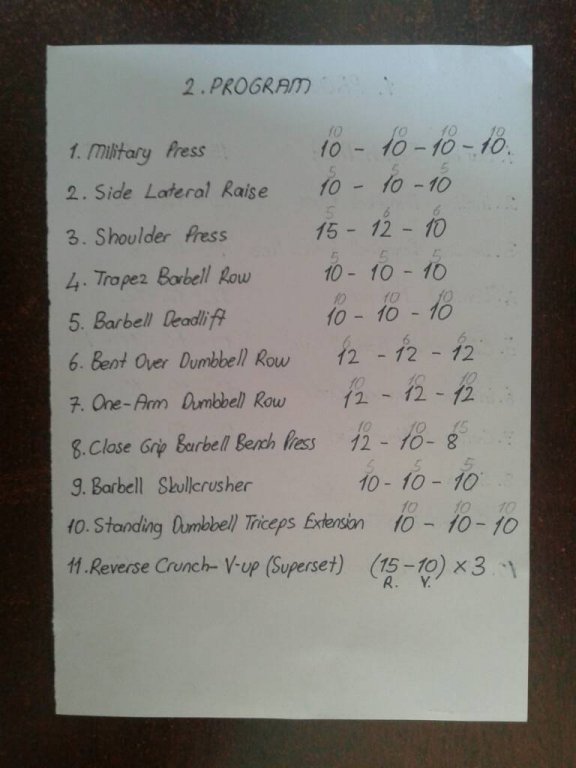 2. PROGRAM
10 10 10 10
1. Military Press 10 - 10 - 10 - 10.
5 5 5
2. Side Lateral Raise 10 - 10 - 10
5 6 6
3. Shoulder Press 15 - 12 - 10
5 5 5
4. Trapez Barbell Row 10 - 10 - 10
10 10 10
5. Barbell Deadlift 10 - 10 - 10
6 6 6
6. Bent Over Dumbbell Row 12 - 12 - 12
10 10 10
7. One-Arm Dumbbell Row 12 - 12 - 12
10 10 15
8. Close Grip Barbell Bench Press 12 - 10 - 8
5 5 5
9. Barbell Skullcrusher 10 - 10 - 10
10 10 10
10. Standing Dumbbell Triceps Extension 10 - 10 - 10
11. Reverse Crunch - V-up (Superset) (15 - 10) × 3
R. V.